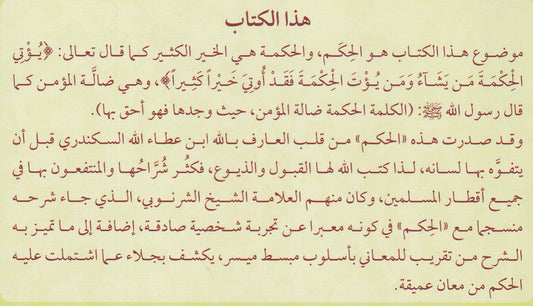 هذا الكتاب
موضوع هذا الكتاب هو الحِكَم، والحكمة هي الخير الكثير كما قال تعالى: ﴿يُؤْتِي
الْحِكْمَةَ مَن يَشَآءُ وَمَن يُؤْتَ الْحِكْمَةَ فَقَدْ أُوتِيَ خَيْراً كَثِيراً﴾، وهي ضالَّة المؤمن كما
قال رسول الله ﷺ: (الكلمة الحكمة ضالة المؤمن، حيث وجدها فهو أحق بها).
وقد صدرت هذه «الحكم» من قلب العارف بالله ابن عطاء الله السكندري قبل أن
يتفوَّه بها لسانه، لذا كتب الله لها القبول والذيوع، فكثُر شُرَّاحُها والمنتفعون بها في
جميع أقطار المسلمين، وكان منهم العلامة الشيخ الشرنوبي، الذي جاء شرحه
منسجما مع «الحِكم» في كونه معبرا عن تجربة شخصية صادقة، إضافة إلى ما تميز به
الشرح من تقريب للمعاني بأسلوب مبسط ميسر، يكشف بجلاء عما اشتملت عليه
الحكم من معان عميقة.